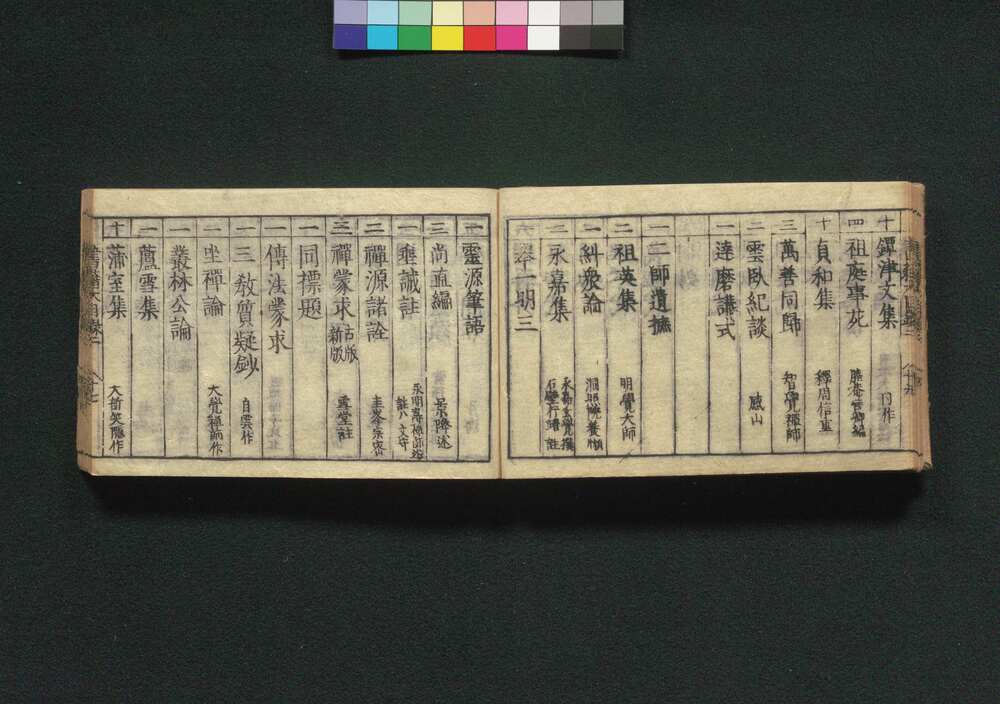 十 鐔津文集 同作
四 祖庭事苑
十 貞和集 釋周信重
三 萬善同歸 智覺禪師
二 雲臥紀談 感山
一 達磨講式
一 二師遺摭
二 祖英集 明覺大師
一 糾繆論
二 永嘉集 永嘉玄覺撰 石壁行靖註
一期三
一 靈源筆語
三 尚直編 景隆述
一 垂誡註
二 禪源諸詮 圭峯宗密
三 禪蒙求 古版 新版 雪堂註
一 同標題
一 傳法蒙求
一 三教質疑鈔 自雲作
二 坐禪論 大覺禪師作
一 叢林公論
一 蘆雪集
十 蒲室集 大訢笑隱作